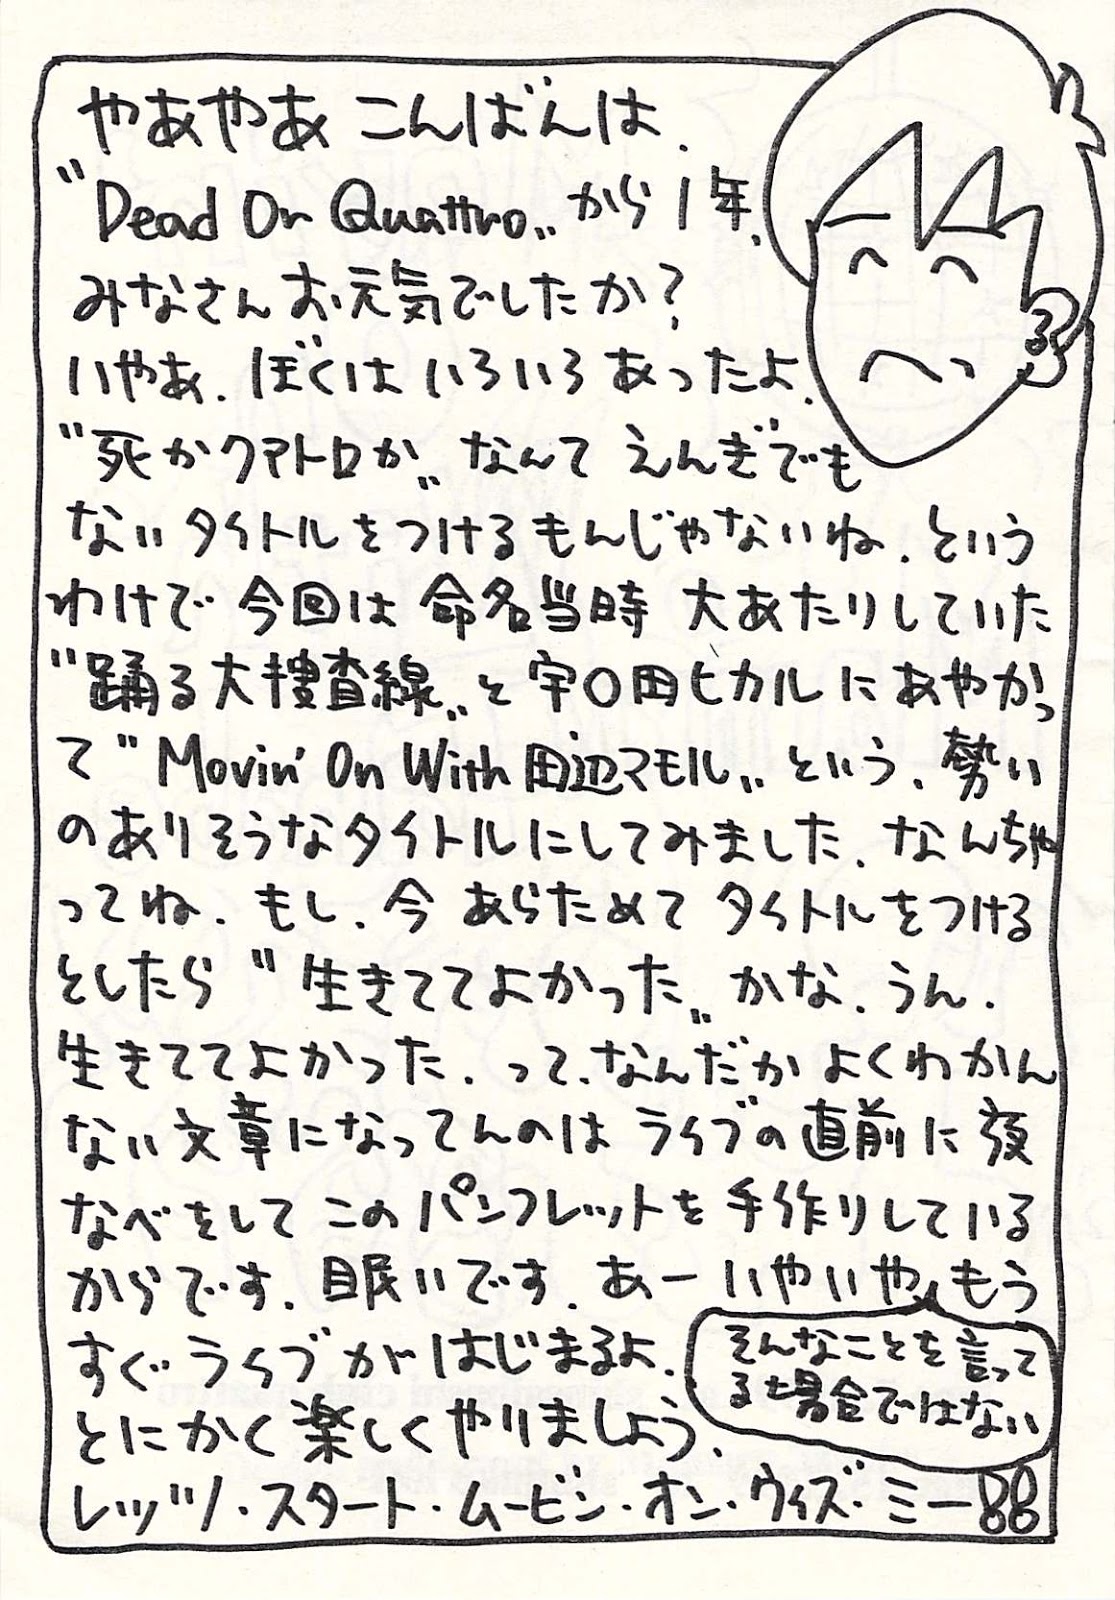 やあやあ こんばんは.
"Dead Or Quattro" から1年.
みなさん お元気でしたか?
いやあ. ぼくは いろいろ あったよ.
"死かクアトロか" なんて えんぎでも
ない タイトルを つけるもんじゃないね. という
わけで 今回は 命名当時 大あたりしていた
"踊る大捜査線" と 宇〇田ヒカル に あやかっ
て "Movin' On With 田辺マモル" という. 勢い
のありそうなタイトルにしてみました. なんちゃ
ってね. もし. 今 あらためて タイトルをつける
としたら "生きててよかった" かな. うん.
生きててよかった. って. なんだか よくわかん
ない文章になってんのは ライブの直前に夜
なべをして このパンフレットを 手作りしている
からです. 眠いです. あー いやいや もう
すぐ ライブがはじまるよ.
そんなことを言って
る場合ではない
とにかく 楽しくやりましょう.
レッツ・スタート・ムービン・オン・ウィズ・ミー